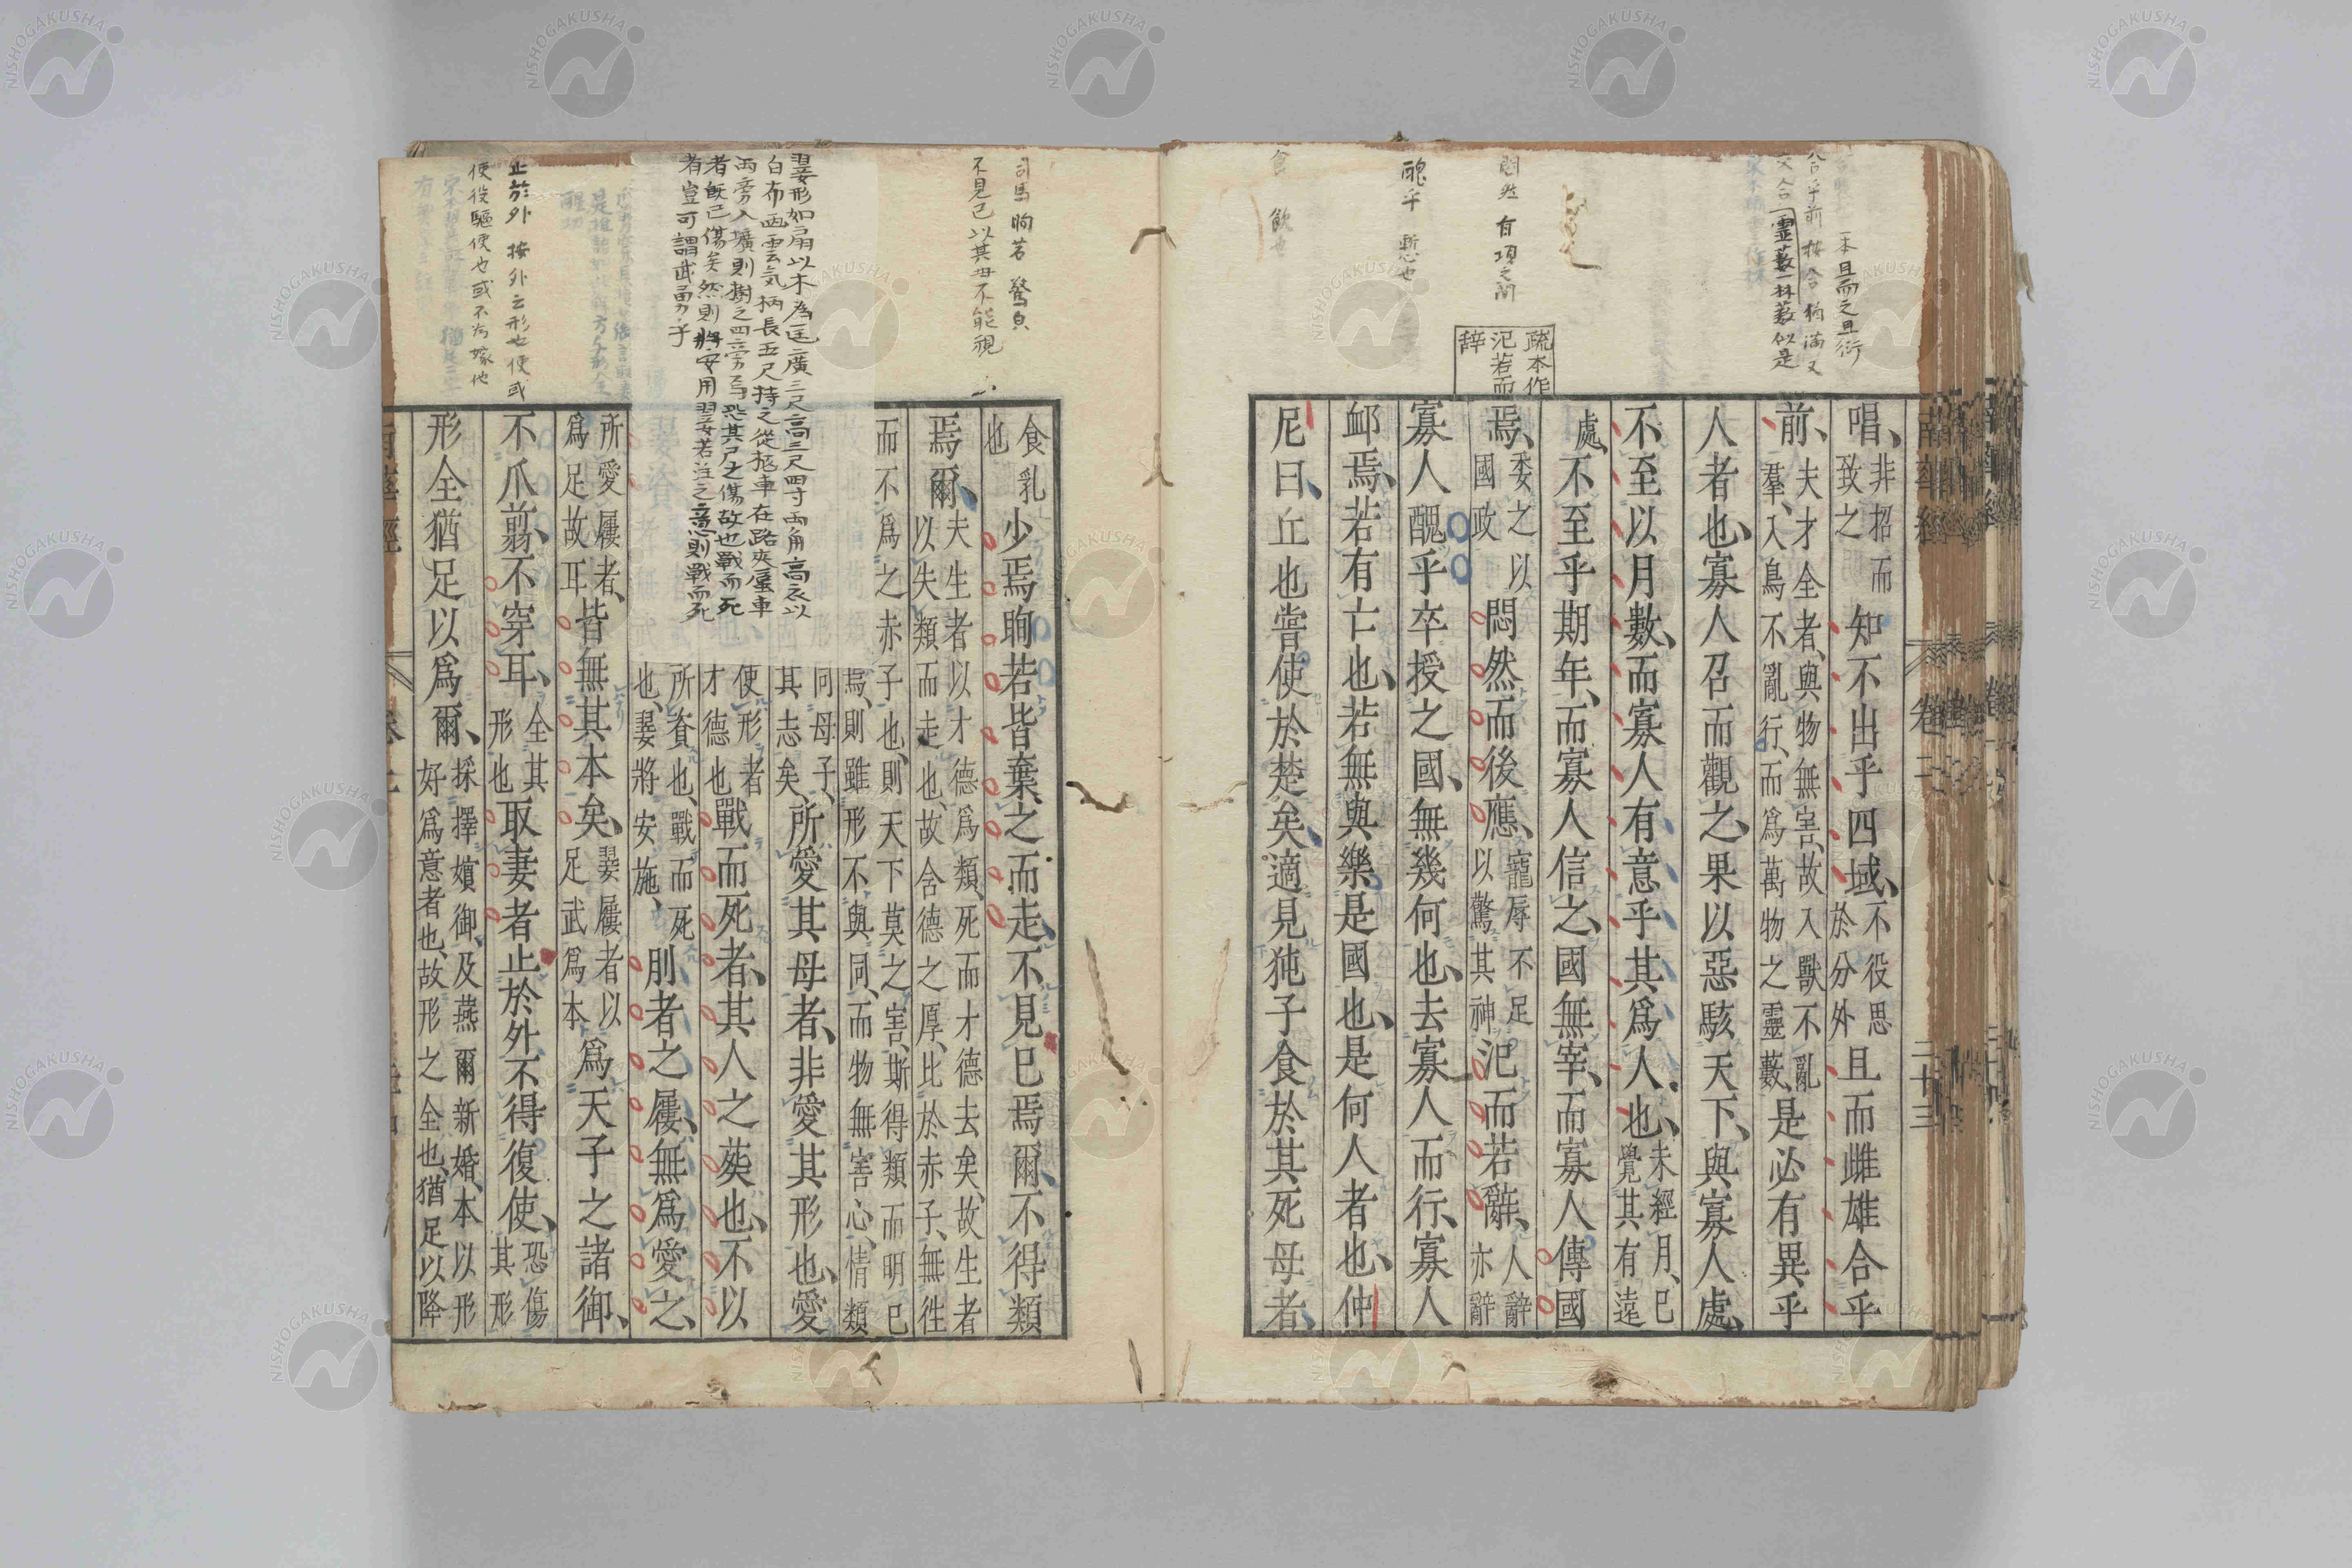 一本且而之且衍
合乎前 按合 猶滿又
交合
靈藪一林藪似是
悶然 有項之間
疏本作
氾若而
辞
醜乎 慙也
食 飲也
唱、非招而
致之
知不出乎四域、不役思
於分外
且而雌雄合乎
前、夫才全者、與物無害、故入獸不亂
羣、入鳥不亂行、而爲萬物之靈藪、
是必有異乎
人者也、寡人召而觀之、果以惡駭天下、與寡人處、
不至以月數、而寡人有意乎其爲人也、未經月、已
覺其有遠
處、不至乎期年、而寡人信之、國無宰、而寡人傳國
焉、委之以
國政
悶然而後應、寵辱不足
以驚其神
氾而若辭、人辭
亦辭
寡人醜乎卒授之國、無幾何也、去寡人而行、寡人
卹焉、若有亡也、若無與樂是國也、是何人者也、仲
尼曰、丘也嘗使於楚矣、適見㹠子食於其死母者、
南華經 卷二 二十三
司馬 眴若 驚皃
不見己 以其母不能視
翣形如扇以木為匡廣三尺高二尺四寸兩角高衣以
白布画雲気柄長五尺持之從柩車在路夾蜃車
両旁入壙則樹之四旁
恐其尸之傷故也戰而死
者既已傷矣然則將安用翣若注之意則戰而死
者豈可謂武勇乎
止於外 按外之形也使或
使役驅使也或不為嫁他
食乳
也
少焉眴若皆棄之而走、不見已焉爾、不得類
焉爾、夫生者以才德爲類、死而才德去矣、故生者
以失類而走也、故含德之厚、比於赤子、無往
而不爲之赤子也、則天下莫之害、斯得類而明已
焉、則雖形不與同、而物無害心、情類
同母子、
其志矣、
所愛其母者、非愛其形也、愛
使形者
才德也
戰而死者、其人之葬也、不以
所資也、戰而死
也、翣將安施、
刖者之屨、無爲愛之、
所愛屨者、
爲足故耳
皆無其本矣、翣屨者以
足武爲本
爲天子之諸御、
不爪翦、不穿耳、全其
形也
取妻者止於外、不得復使、恐傷
其形
形全猶足以爲爾、採擇嬪御、及燕爾新婚、本以形
好爲意者也、故形之全也、猶足以降
NISHOGAKUSHA